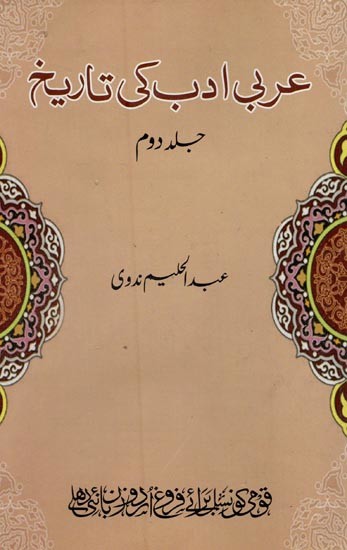 عربی ادب کی تاریخ
جلد دوم
عبد الحلیم ندوی
قومی کونسل برائے فروغ اردو زبان نئی دہلی